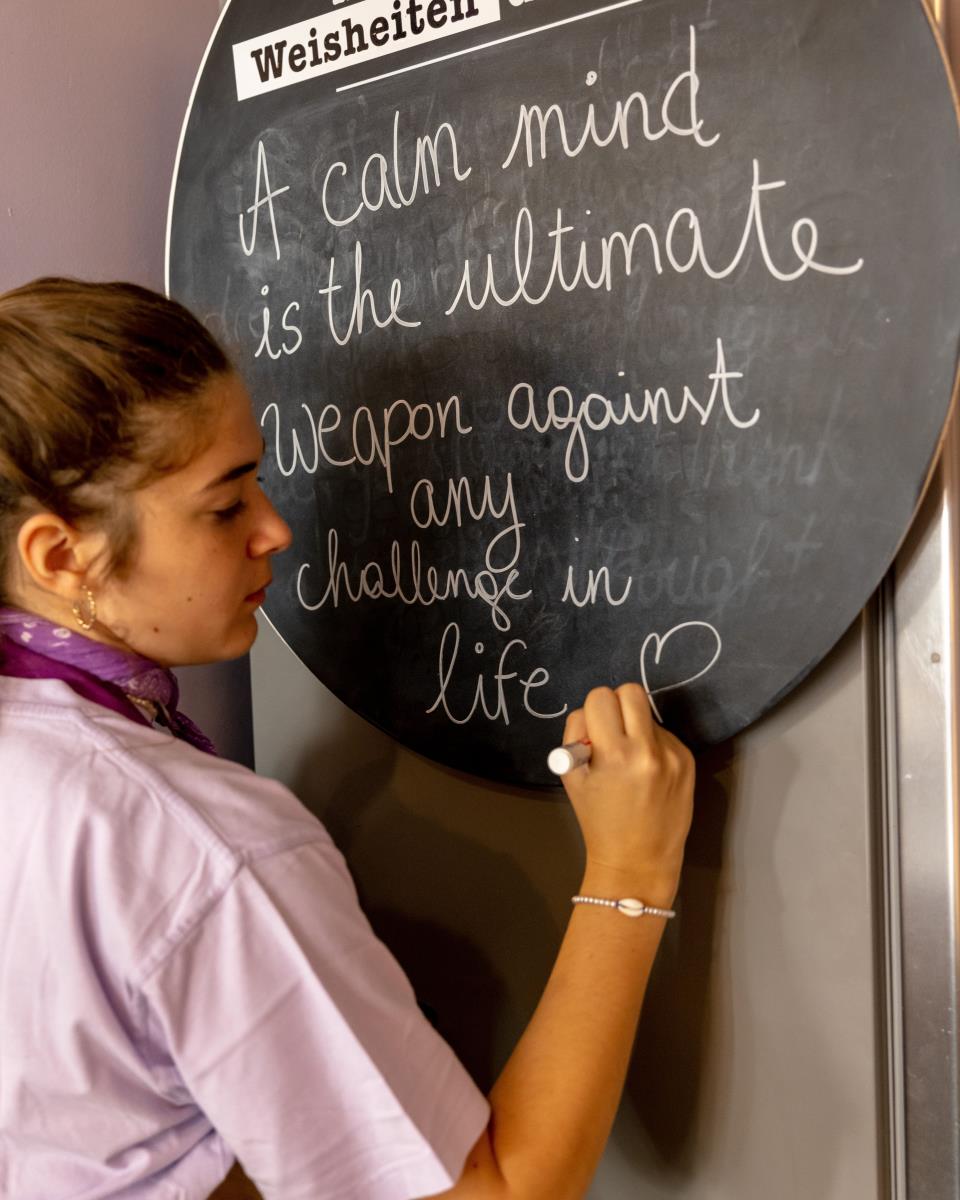 Weisheiten
A calm mind
is the ultimate
weapon against
any
challenge in
life